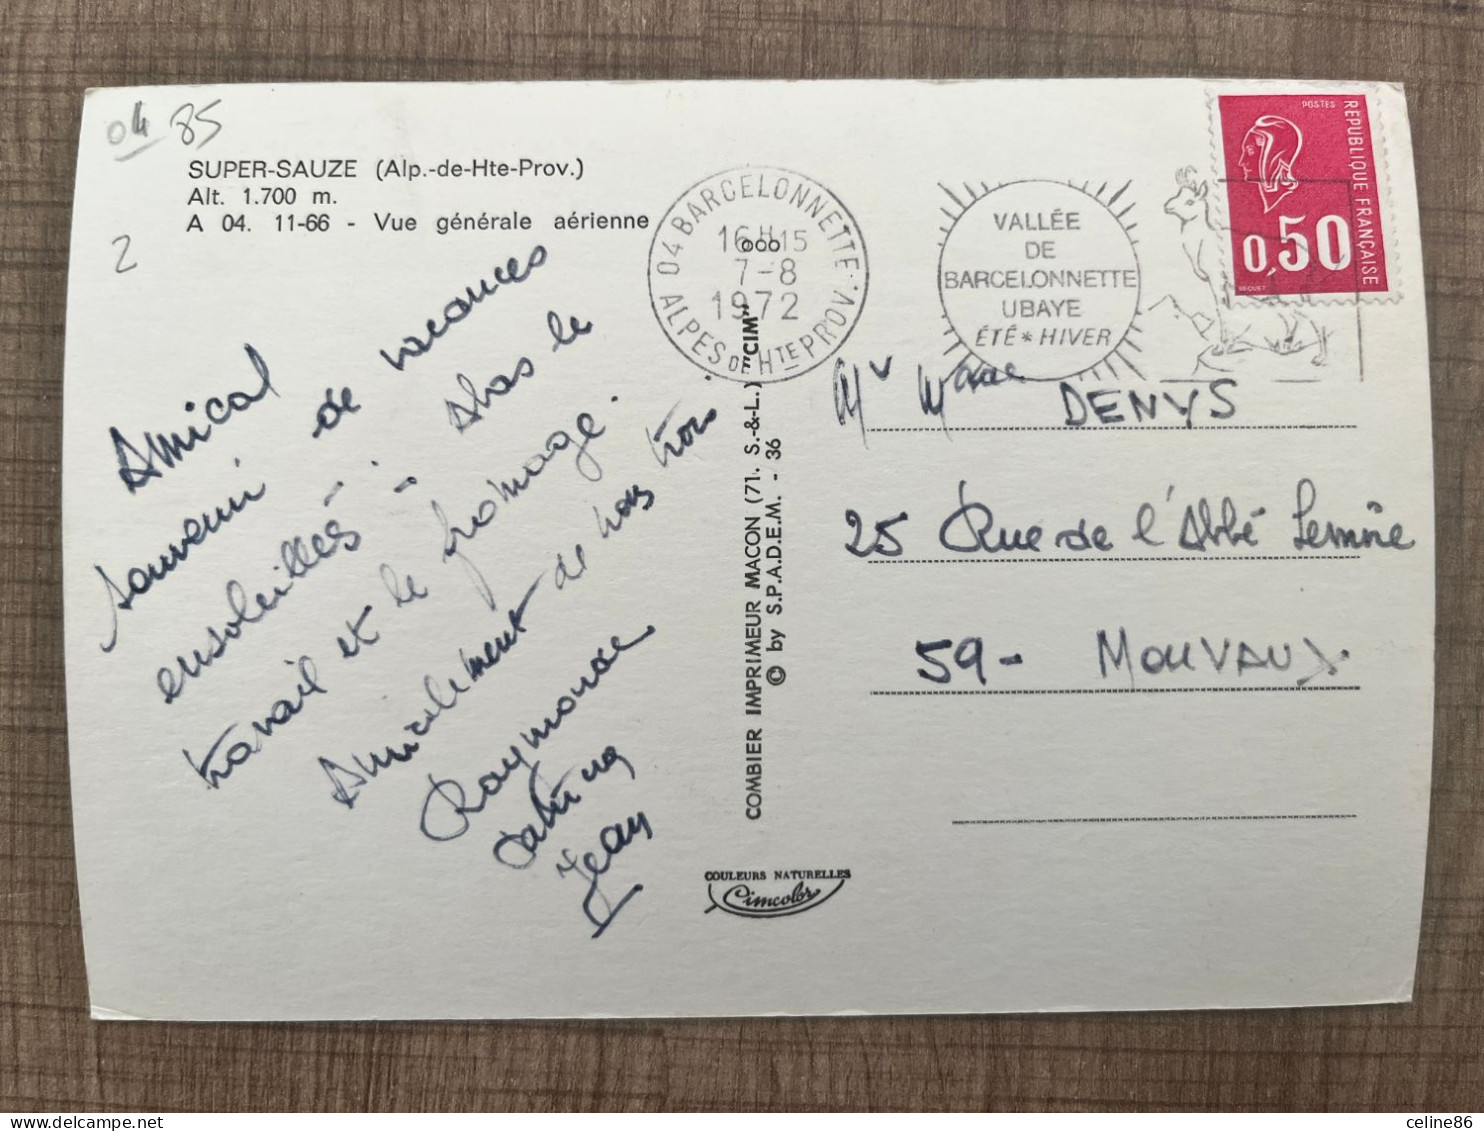 04 85
SUPER-SAUZE (Alp.-de-Hte-Prov.)
Alt. 1.700 m.
A 04. 11-66 - Vue générale aérienne
2
Amical
souvenir de vacances
ensoleillés - A bas le
travail et le fromage.
Amicalement de nous trois
Raymonde
Jean
04 BARCELONNETTE
16H15
7-8
1972
ALPES DE HTE PROV.
VALLÉE
DE
BARCELONNETTE
UBAYE
ÉTÉ * HIVER
POSTES
RÉPUBLIQUE FRANÇAISE
0,50
BEQUET
COMBIER IMPRIMEUR MACON (71. S.-&-L.) "CIM"
© by S.P.A.D.E.M. - 36
COULEURS NATURELLES
Cimcolor
DENYS
25 Rue de l'Abbé Lemire
59- MOUVAUX
celine86